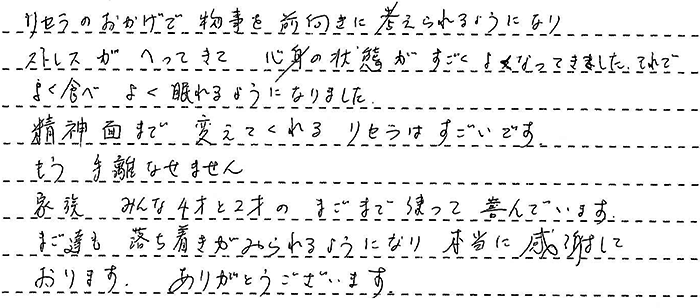 リセラのおかげで 物事を 前向きに 考えられるようになり
ストレスが へってきて 心身の状態が すごく よくなってきました。それで
よく食べ よく眠れるようになりました。
精神面まで 変えてくれる リセラは すごいです。
もう 手離なせません
家族 みんな4才と2才の まごまで使って 喜んでいます。
まご達も 落ち着きがみられるようになり 本当に 感謝して
おります。 ありがとうございます。